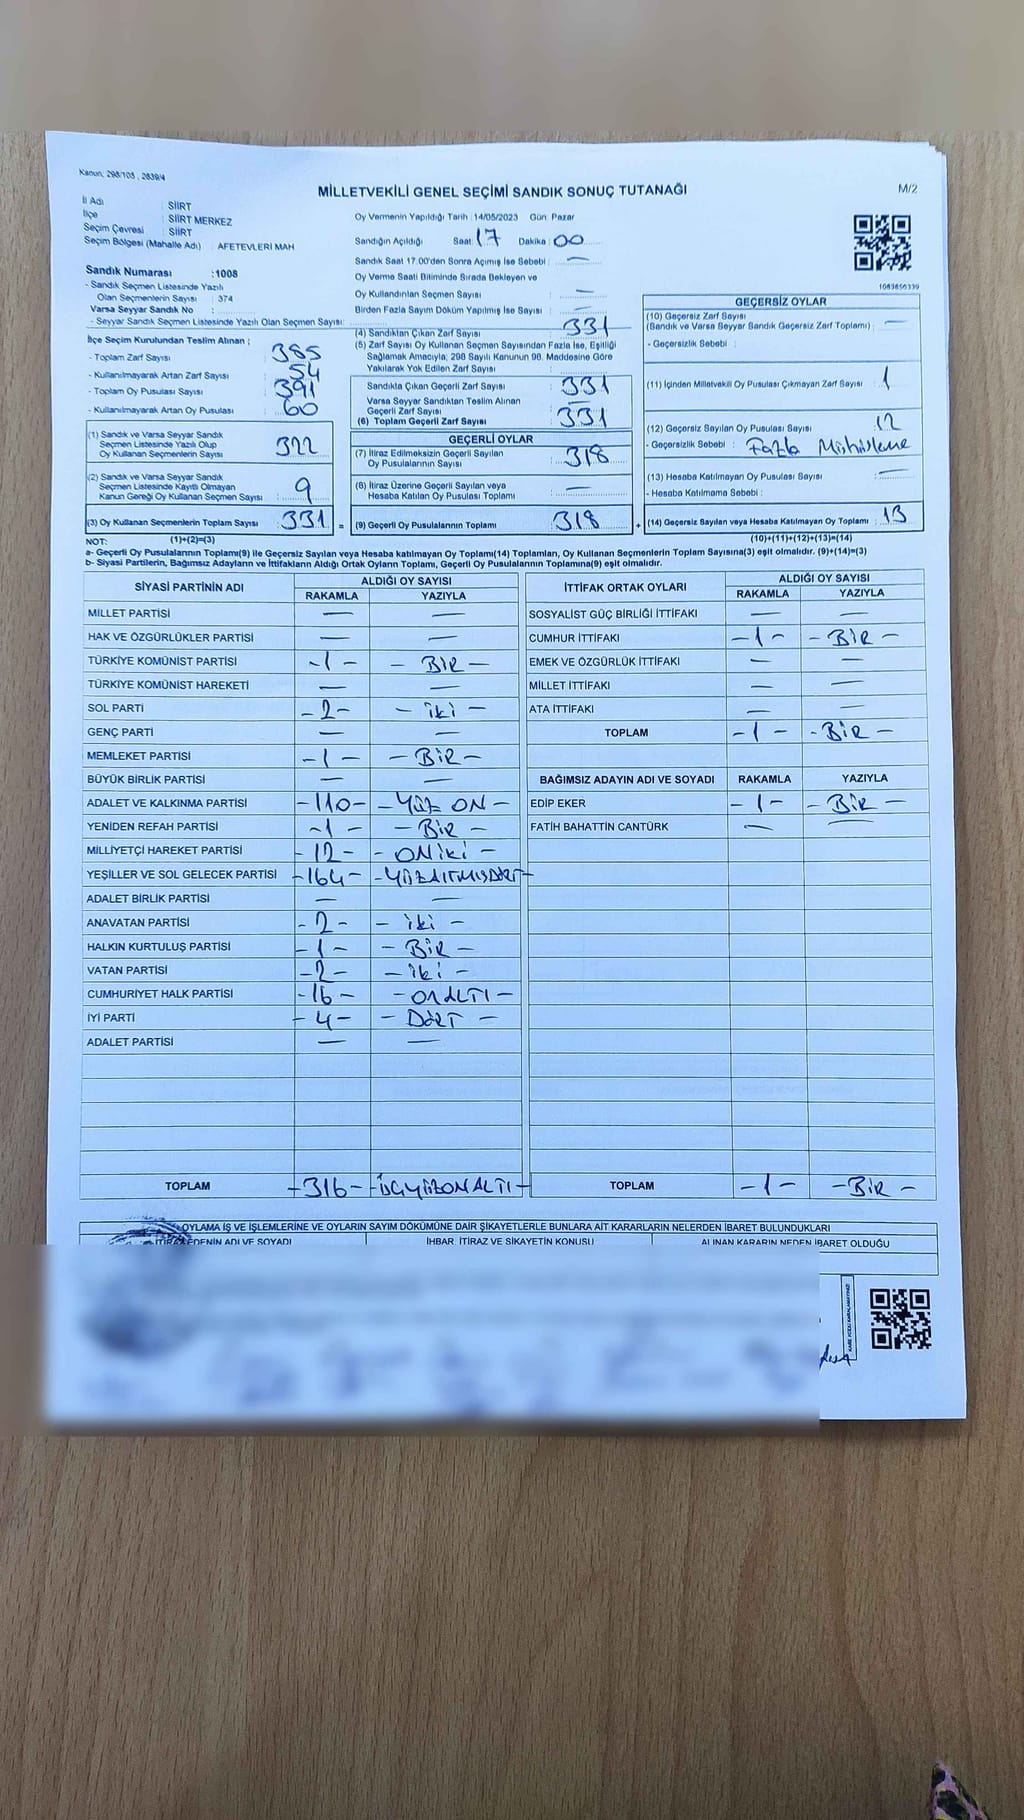 Kanun, 298/105 , 2839/4
MİLLETVEKİLİ GENEL SEÇİMİ SANDIK SONUÇ TUTANAĞI
M/2
İl Adı : SİİRT
İlçe : SİİRT MERKEZ
Seçim Çevresi : SİİRT
Seçim Bölgesi (Mahalle Adı) : AFETEVLERİ MAH
Oy Vermenin Yapıldığı Tarih : 14/05/2023 Gün: Pazar
Sandığın Açıldığı Saat: 17 Dakika: 00
Sandık Saat 17.00'den Sonra Açımış İse Sebebi : —
Oy Verme Saati Bitiminde Sırada Bekleyen ve
Oy Kullandırılan Seçmen Sayısı : —
Birden Fazla Sayım Döküm Yapılmış İse Sayısı : —
Sandık Numarası :1008
- Sandık Seçmen Listesinde Yazılı
Olan Seçmenlerin Sayısı : 374
Varsa Seyyar Sandık No :
- Seyyar Sandık Seçmen Listesinde Yazılı Olan Seçmen Sayısı:
İlçe Seçim Kurulundan Teslim Alınan ;
- Toplam Zarf Sayısı : 385
- Kullanılmayarak Artan Zarf Sayısı : 54
- Toplam Oy Pusulası Sayısı : 391
- Kullanılmayarak Artan Oy Pusulası : 60
(1) Sandık ve Varsa Seyyar Sandık
Seçmen Listesinde Yazılı Olup
Oy Kullanan Seçmenlerin Sayısı : 322
(2) Sandık ve Varsa Seyyar Sandık
Seçmen Listesinde Kayıtlı Olmayan
Kanun Gereği Oy Kullanan Seçmen Sayısı : 9
(3) Oy Kullanan Seçmenlerin Toplam Sayısı : 331 =
(4) Sandıktan Çıkan Zarf Sayısı : 331
(5) Zarf Sayısı Oy Kullanan Seçmen Sayısından Fazla İse, Eşitliği
Sağlamak Amacıyla; 298 Sayılı Kanunun 98. Maddesine Göre
Yakılarak Yok Edilen Zarf Sayısı :
Sandıkta Çıkan Geçerli Zarf Sayısı : 331
Varsa Seyyar Sandıktan Teslim Alınan
Geçerli Zarf Sayısı : —
(6) Toplam Geçerli Zarf Sayısı : 331
GEÇERLİ OYLAR
(7) İtiraz Edilmeksizin Geçerli Sayılan
Oy Pusulalarının Sayısı : 318
(8) İtiraz Üzerine Geçerli Sayılan veya
Hesaba Katılan Oy Pusulası Toplamı : —
(9) Geçerli Oy Pusulalarının Toplamı : 318 +
1083656339
GEÇERSİZ OYLAR
(10) Geçersiz Zarf Sayısı
(Sandık ve Varsa Seyyar Sandık Geçersiz Zarf Toplamı) : —
- Geçersizlik Sebebi :
(11) İçinden Milletvekili Oy Pusulası Çıkmayan Zarf Sayısı : 1
(12) Geçersiz Sayılan Oy Pusulası Sayısı : 12
- Geçersizlik Sebebi : Fazla Mühürleme
(13) Hesaba Katılmayan Oy Pusulası Sayısı : —
- Hesaba Katılmama Sebebi :
(14) Geçersiz Sayılan veya Hesaba Katılmayan Oy Toplamı : 13
NOT: (1)+(2)=(3) (10)+(11)+(12)+(13)=(14)
a- Geçerli Oy Pusulalarının Toplamı(9) ile Geçersiz Sayılan veya Hesaba katılmayan Oy Toplamı(14) Toplamları, Oy Kullanan Seçmenlerin Toplam Sayısına(3) eşit olmalıdır. (9)+(14)=(3)
b- Siyasi Partilerin, Bağımsız Adayların ve İttifakların Aldığı Ortak Oyların Toplamı, Geçerli Oy Pusulalarının Toplamına(9) eşit olmalıdır.
SİYASİ PARTİNİN ADI ALDIĞI OY SAYISI
RAKAMLA YAZIYLA
MİLLET PARTİSİ — —
HAK VE ÖZGÜRLÜKLER PARTİSİ — —
TÜRKİYE KOMÜNİST PARTİSİ -1- - BİR -
TÜRKİYE KOMÜNİST HAREKETİ — —
SOL PARTİ -2- - iki -
GENÇ PARTİ — —
MEMLEKET PARTİSİ -1- - BİR -
BÜYÜK BİRLİK PARTİSİ — —
ADALET VE KALKINMA PARTİSİ -110- - YÜZ ON -
YENİDEN REFAH PARTİSİ -1- - BİR -
MİLLİYETÇİ HAREKET PARTİSİ -12- - ONiki -
YEŞİLLER VE SOL GELECEK PARTİSİ -164- -YÜZALTMIŞDÖRT-
ADALET BİRLİK PARTİSİ — —
ANAVATAN PARTİSİ -2- - iki -
HALKIN KURTULUŞ PARTİSİ -1- - BİR -
VATAN PARTİSİ -2- - iki -
CUMHURİYET HALK PARTİSİ -16- - ONALTI -
İYİ PARTİ -4- - DÖRT -
ADALET PARTİSİ — —
TOPLAM -316- -ÜÇYÜZONALTI-
İTTİFAK ORTAK OYLARI ALDIĞI OY SAYISI
RAKAMLA YAZIYLA
SOSYALİST GÜÇ BİRLİĞİ İTTİFAKI — —
CUMHUR İTTİFAKI -1- - BİR -
EMEK VE ÖZGÜRLÜK İTTİFAKI — —
MİLLET İTTİFAKI — —
ATA İTTİFAKI — —
TOPLAM -1- - BİR -
BAĞIMSIZ ADAYIN ADI VE SOYADI RAKAMLA YAZIYLA
EDİP EKER -1- - BİR -
FATİH BAHATTİN CANTÜRK — —
TOPLAM -1- - BİR -
OYLAMA İŞ VE İŞLEMLERİNE VE OYLARIN SAYIM DÖKÜMÜNE DAİR ŞİKAYETLERLE BUNLARA AİT KARARLARIN NELERDEN İBARET BULUNDUKLARI
İTİRAZ EDENİN ADI VE SOYADI İHBAR, İTİRAZ VE ŞİKAYETİN KONUSU ALINAN KARARIN NEDEN İBARET OLDUĞU